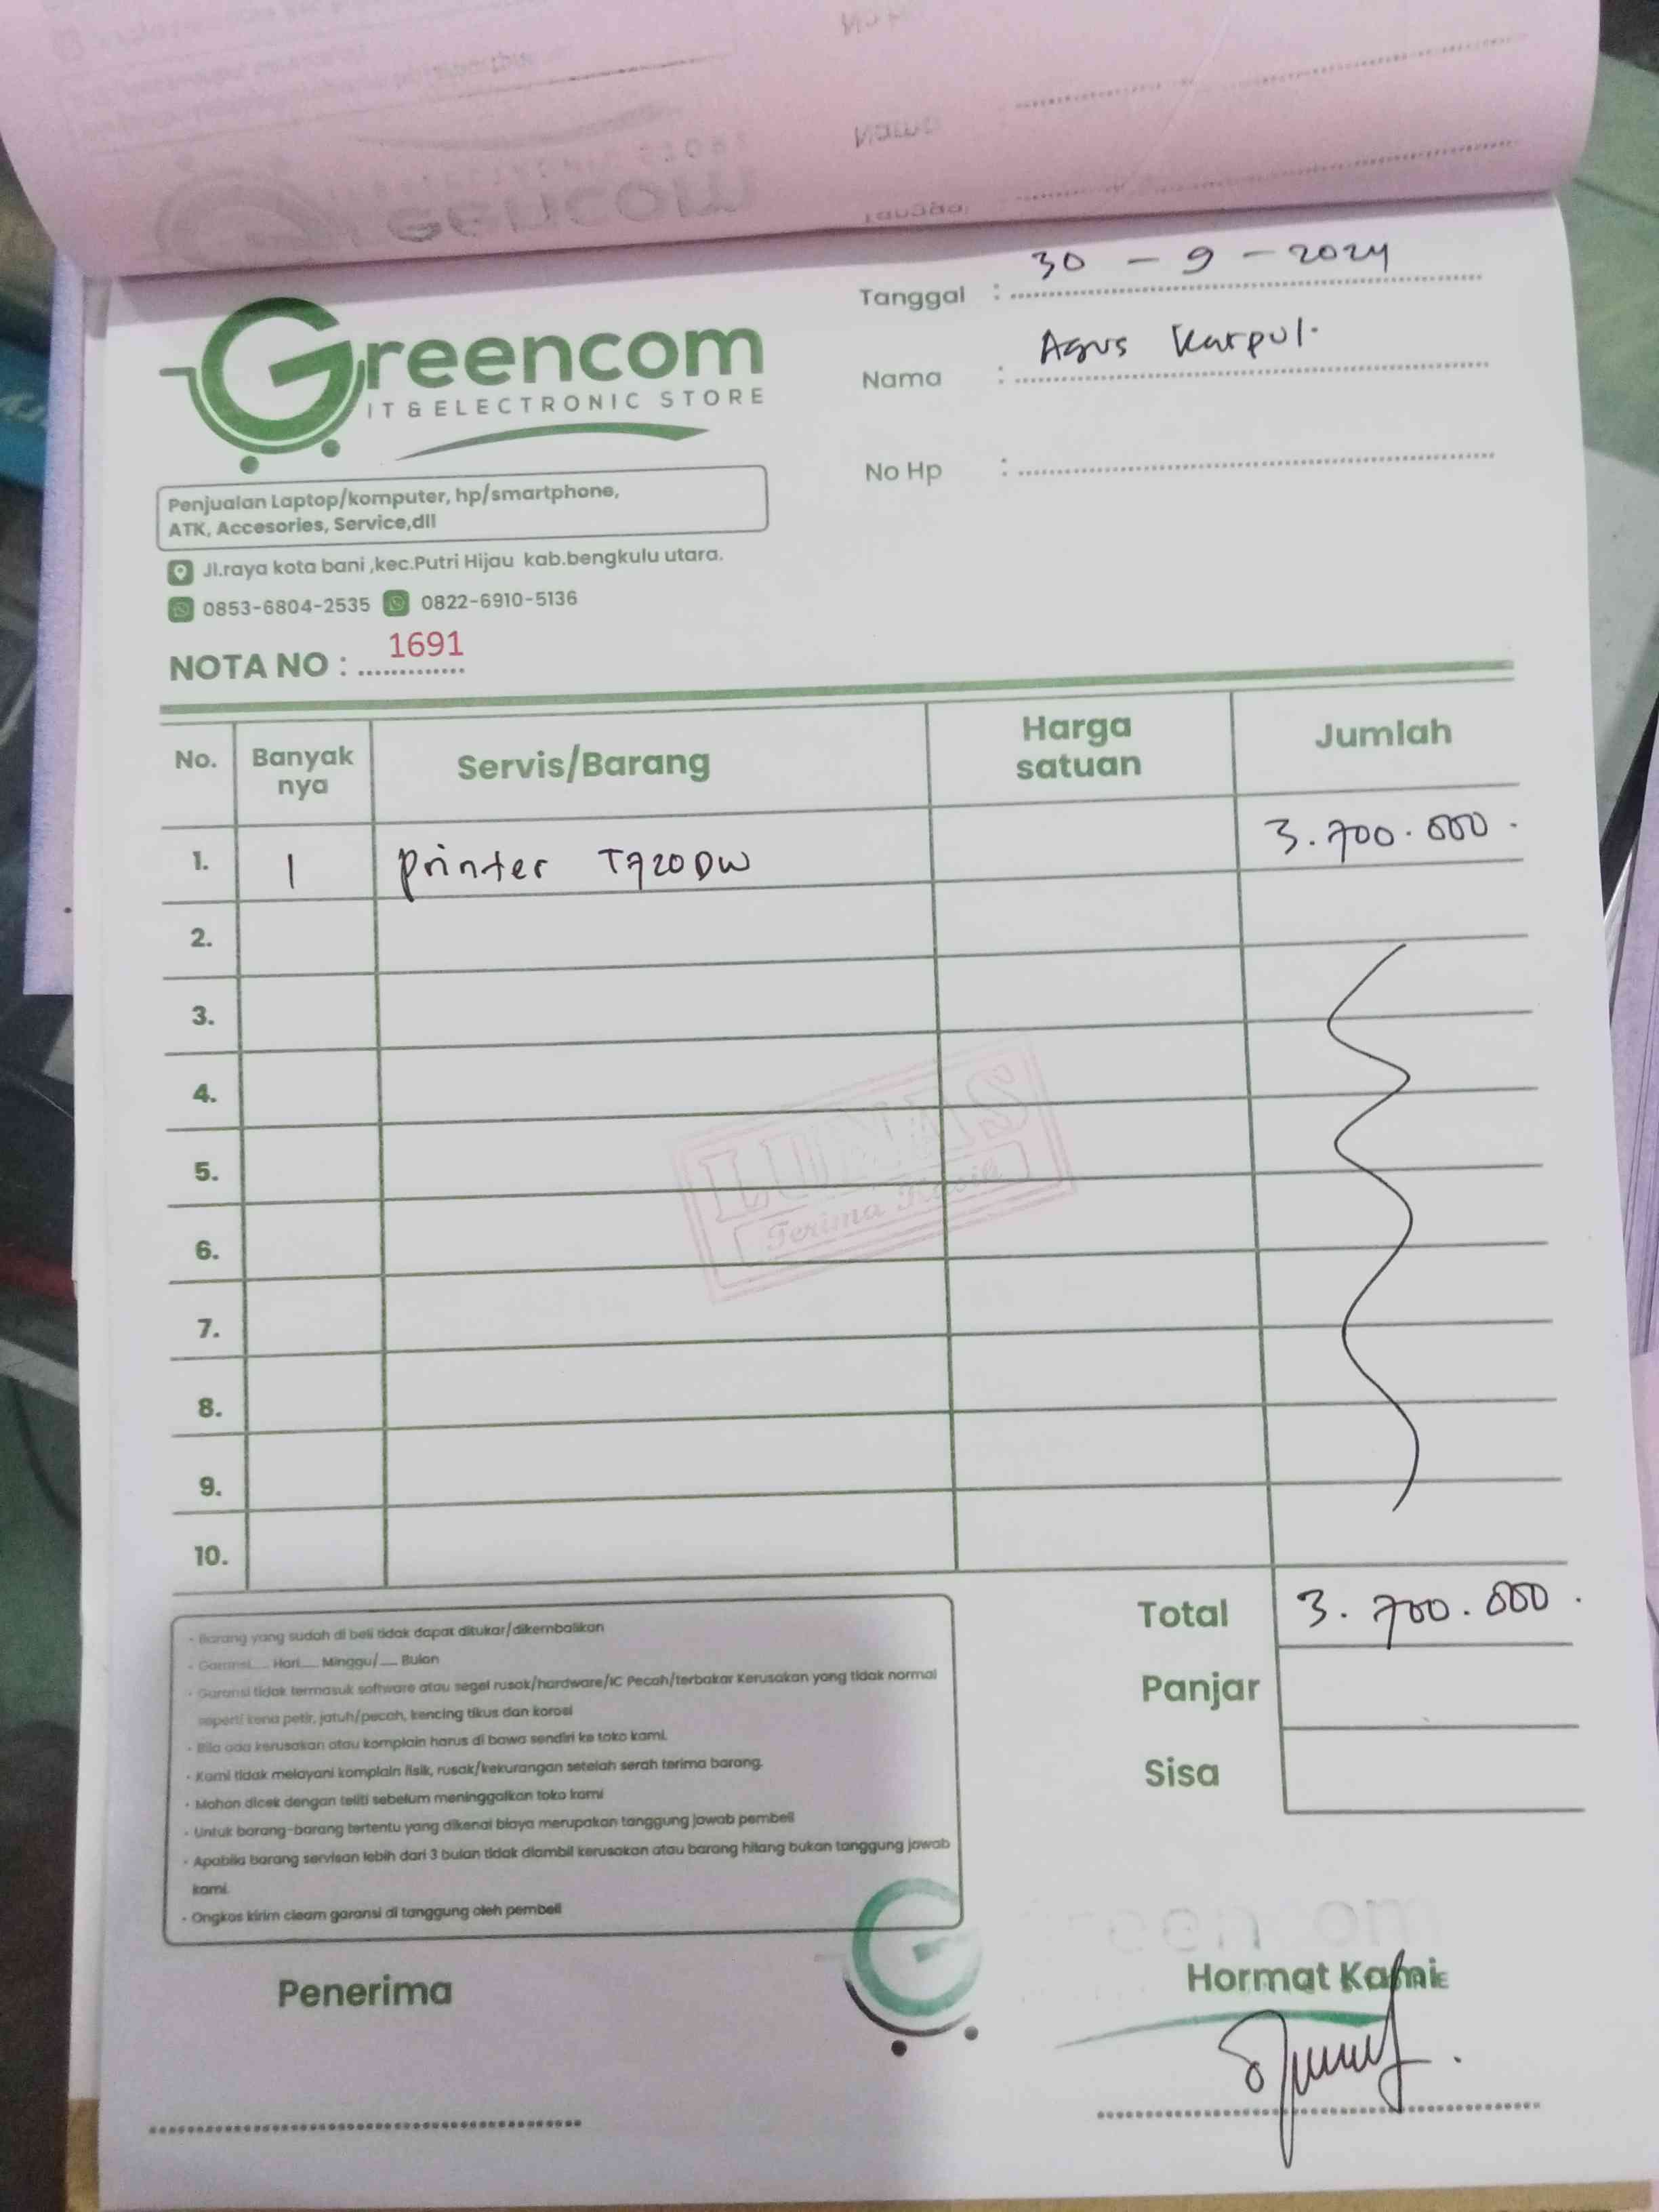 Tanggal : 30 - 9 - 2024
Greencom
IT & ELECTRONIC STORE
Nama : Agus Karpul.
No Hp :
Penjualan Laptop/komputer, hp/smartphone,
ATK, Accesories, Service,dll
Jl.raya kota bani ,kec.Putri Hijau kab.bengkulu utara.
0853-6804-2535 0822-6910-5136
NOTA NO : 1691
No. Banyak nya Servis/Barang Harga satuan Jumlah
1. 1 Printer T720DW 3.700.000.
2.
3.
4.
5.
6.
7.
8.
9.
10.
LUNAS
Terima Kasih
Total 3.700.000.
Panjar
Sisa
- Barang yang sudah di beli tidak dapat ditukar/dikembalikan
- Garansi__ Hari__ Minggu/__ Bulan
- Garansi tidak termasuk software atau segel rusak/hardware/IC Pecah/terbakar Kerusakan yang tidak normal
seperti kena petir, jatuh/pecah, kencing tikus dan korosi
- Bila ada kerusakan atau komplain harus di bawa sendiri ke toko kami.
- Kami tidak melayani komplain fisik, rusak/kekurangan setelah serah terima barang.
- Mohon dicek dengan teliti sebelum meninggalkan toko kami
- Untuk barang-barang tertentu yang dikenai biaya merupakan tanggung jawab pembeli
- Apabila barang servisan lebih dari 3 bulan tidak diambil kerusakan atau barang hilang bukan tanggung jawab
kami.
- Ongkos kirim cleam garansi di tanggung oleh pembeli
Penerima
Hormat Kami